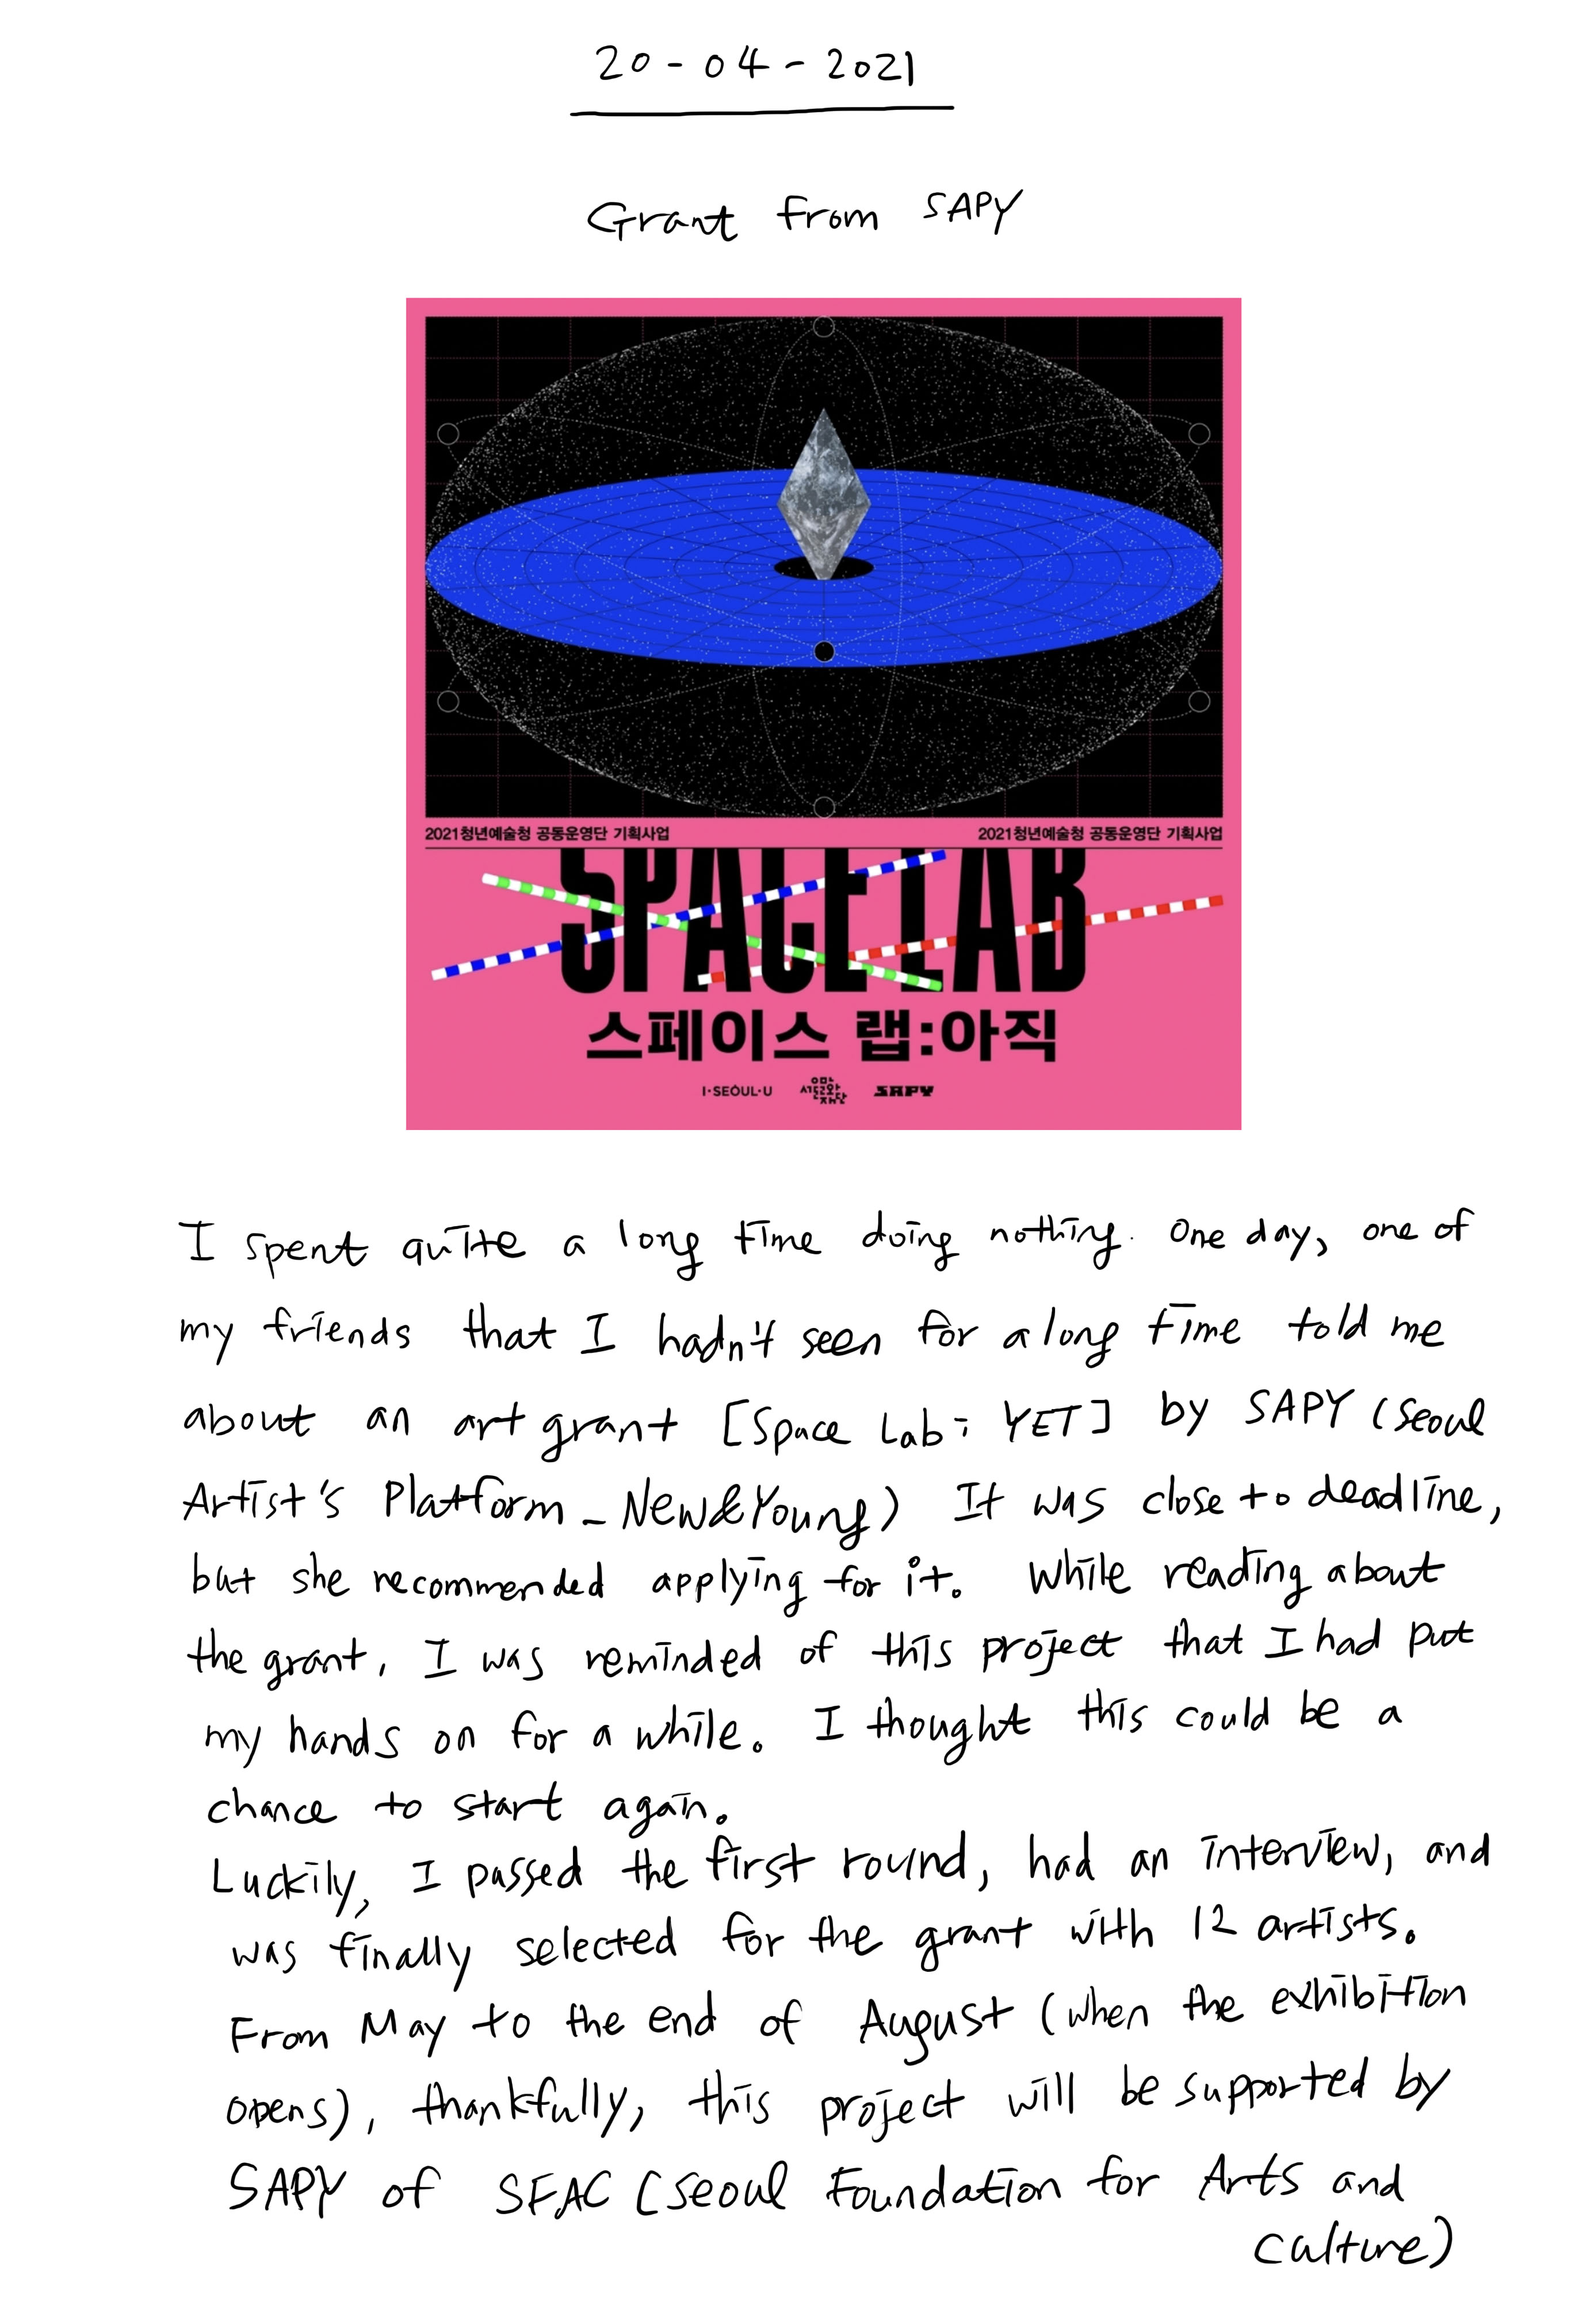 20-04-2021
Grant from SAPY
2021청년예술청 공동운영단 기획사업 2021청년예술청 공동운영단 기획사업
SPACE LAB
스페이스 랩:아직
I·SEOUL·U 서울문화재단 SAPY
I spent quite a long time doing nothing. One day, one of
my friends that I hadn't seen for a long time told me
about an art grant [Space Lab: YET] by SAPY (Seoul
Artist's Platform_New&Young) It was close to deadline,
but she recommended applying for it. While reading about
the grant, I was reminded of this project that I had put
my hands on for a while. I thought this could be a
chance to start again.
Luckily, I passed the first round, had an interview, and
was finally selected for the grant with 12 artists.
From May to the end of August (when the exhibition
opens), thankfully, this project will be supported by
SAPY of SFAC (Seoul Foundation for Arts and
Culture)